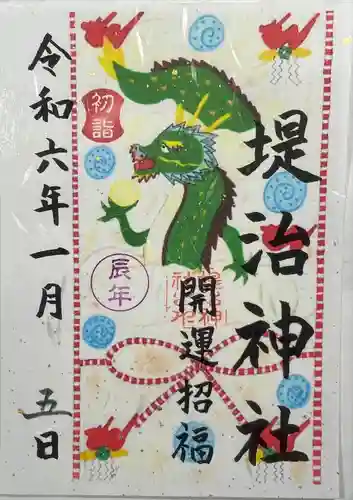 堤治神社
開運招福
初詣
辰年
令和六年一月五日